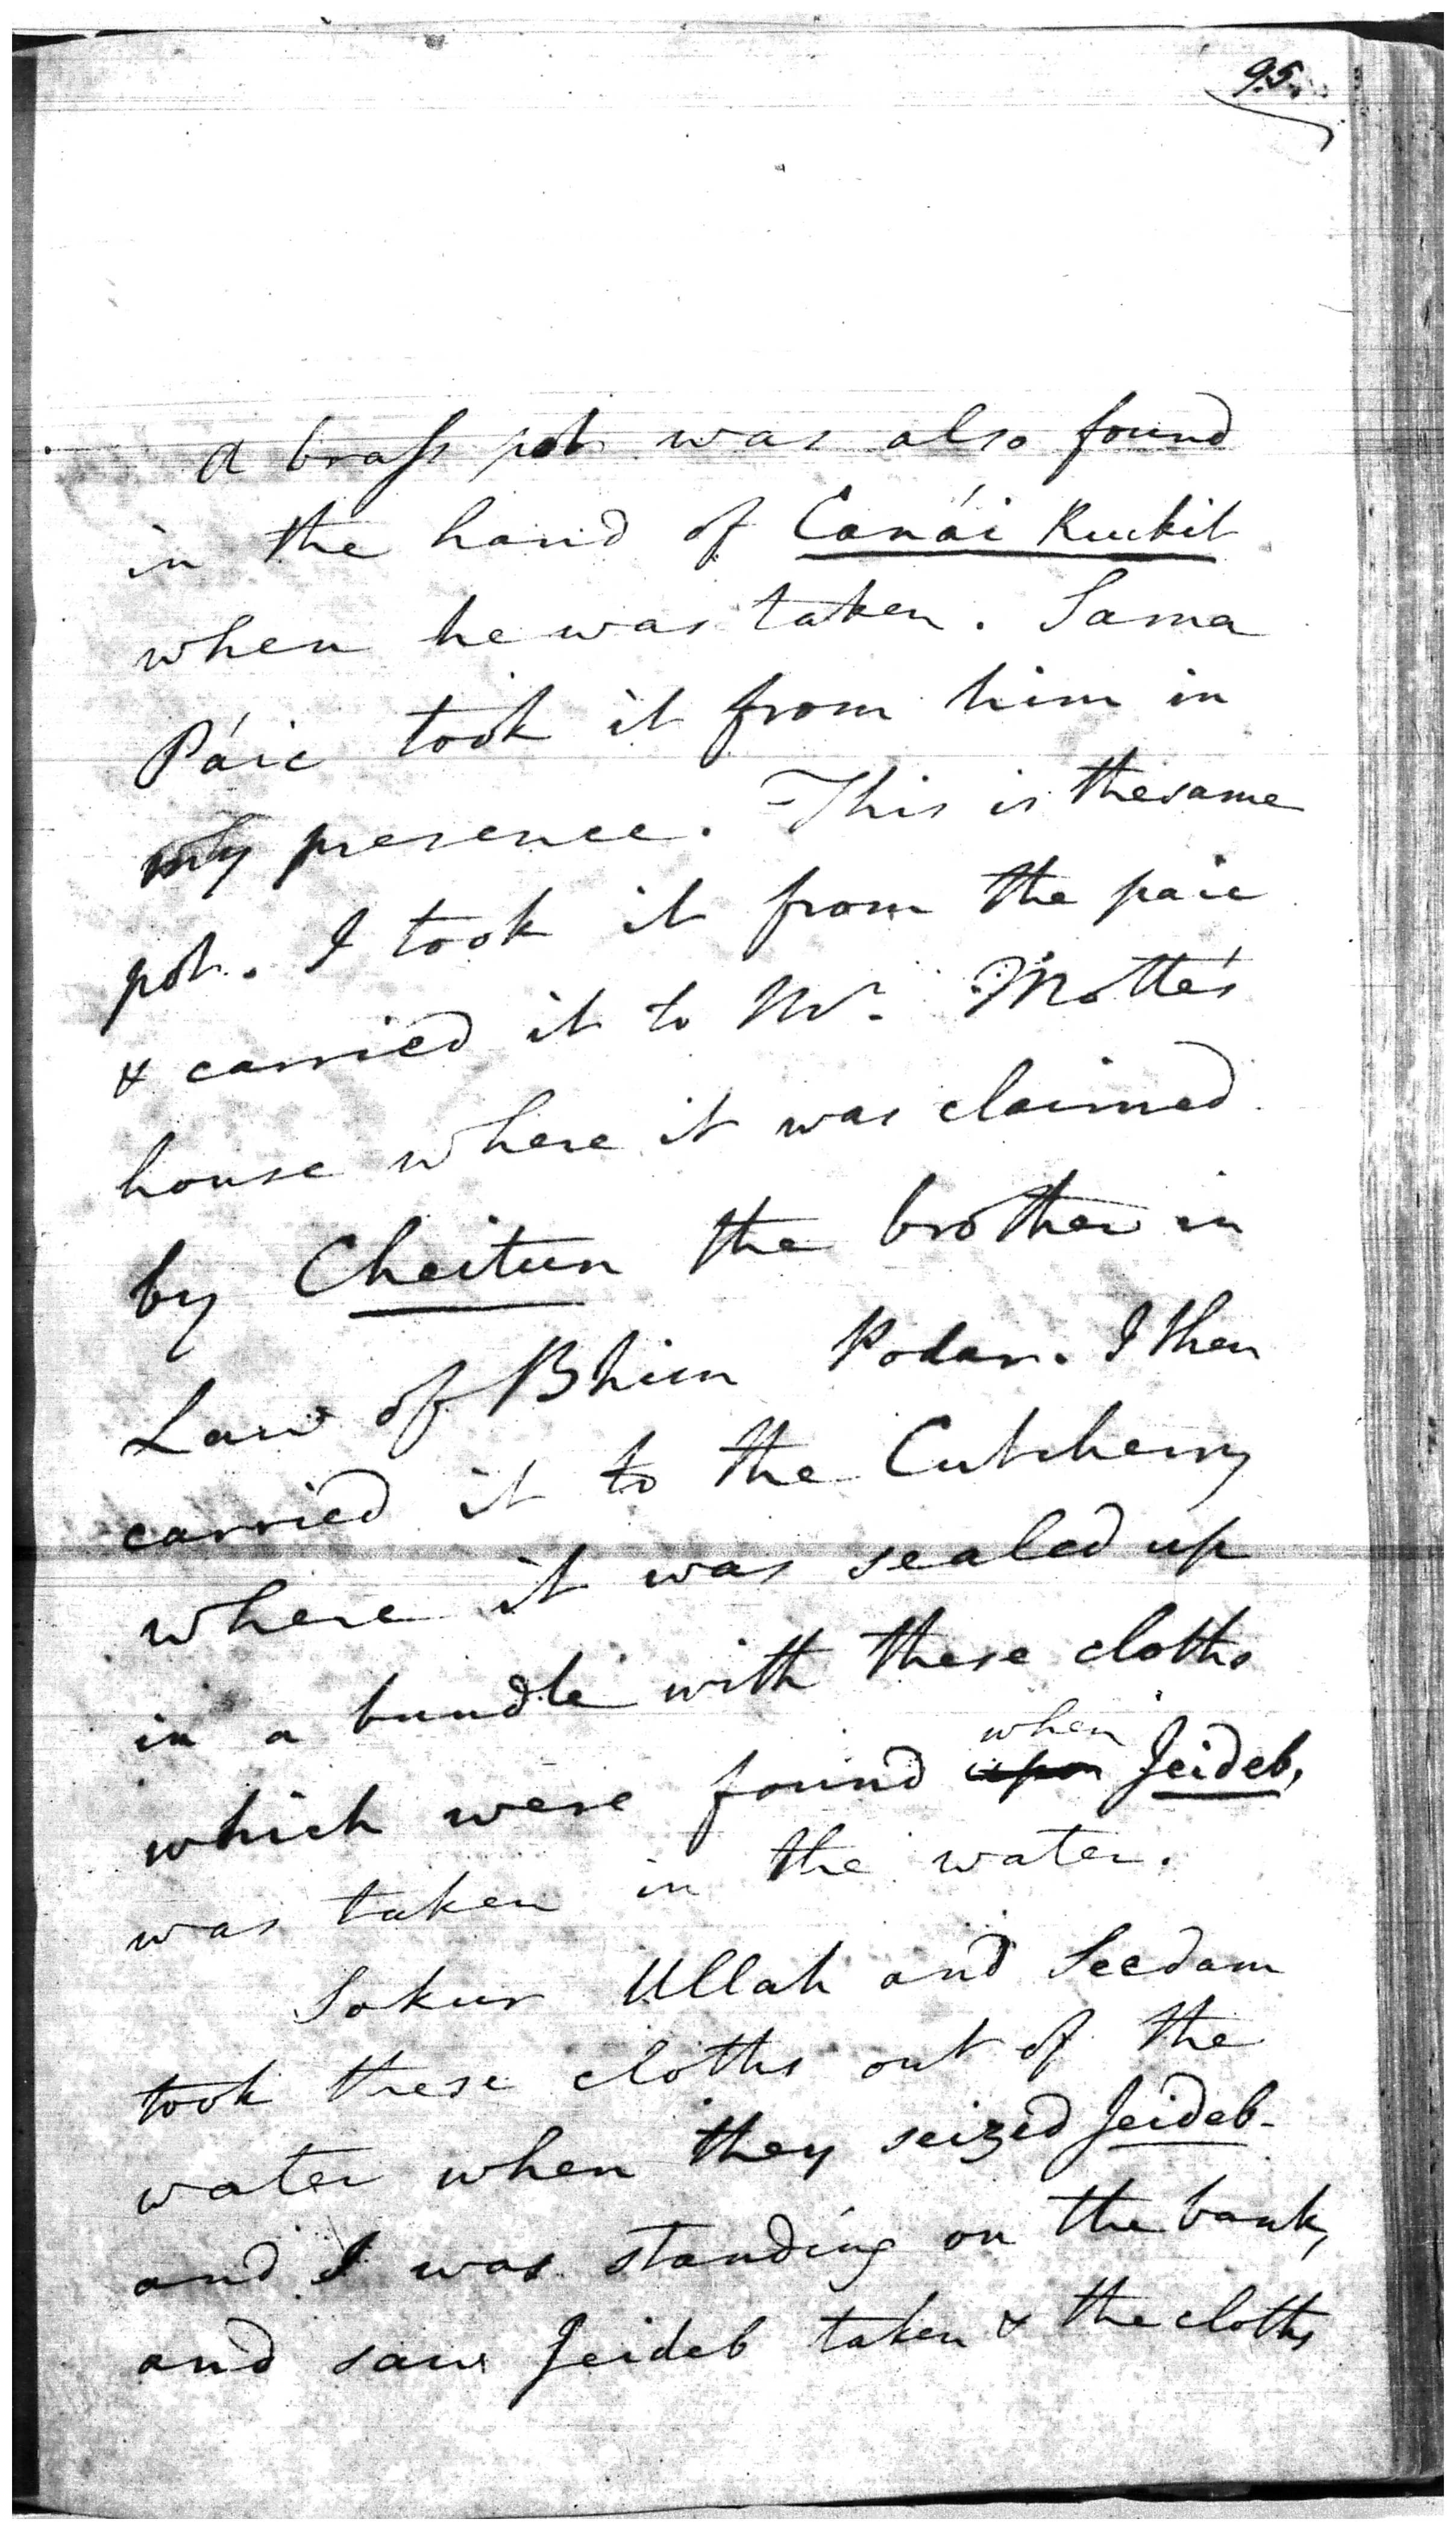 95.
A brass pot was also found
in the hand of Canái Ruckit
when he was taken. Sama
Páic took it from him in
my presence. This is the same
pot. I took it from the paic
& carried it to Mr. Motte's
house where it was claimed
by Cheitun the brother in
Law of Bhim Podar. I then
carried it to the Cutcherry
where it was sealed up
in a bundle with these cloths
when
which were found upon Jeideb,
was taken in the water.
Sokur Ullah and Seedam
took these cloths out of the
water when they seized Jeideb-
and I was standing on the bank,
and saw Jeideb taken & the cloths